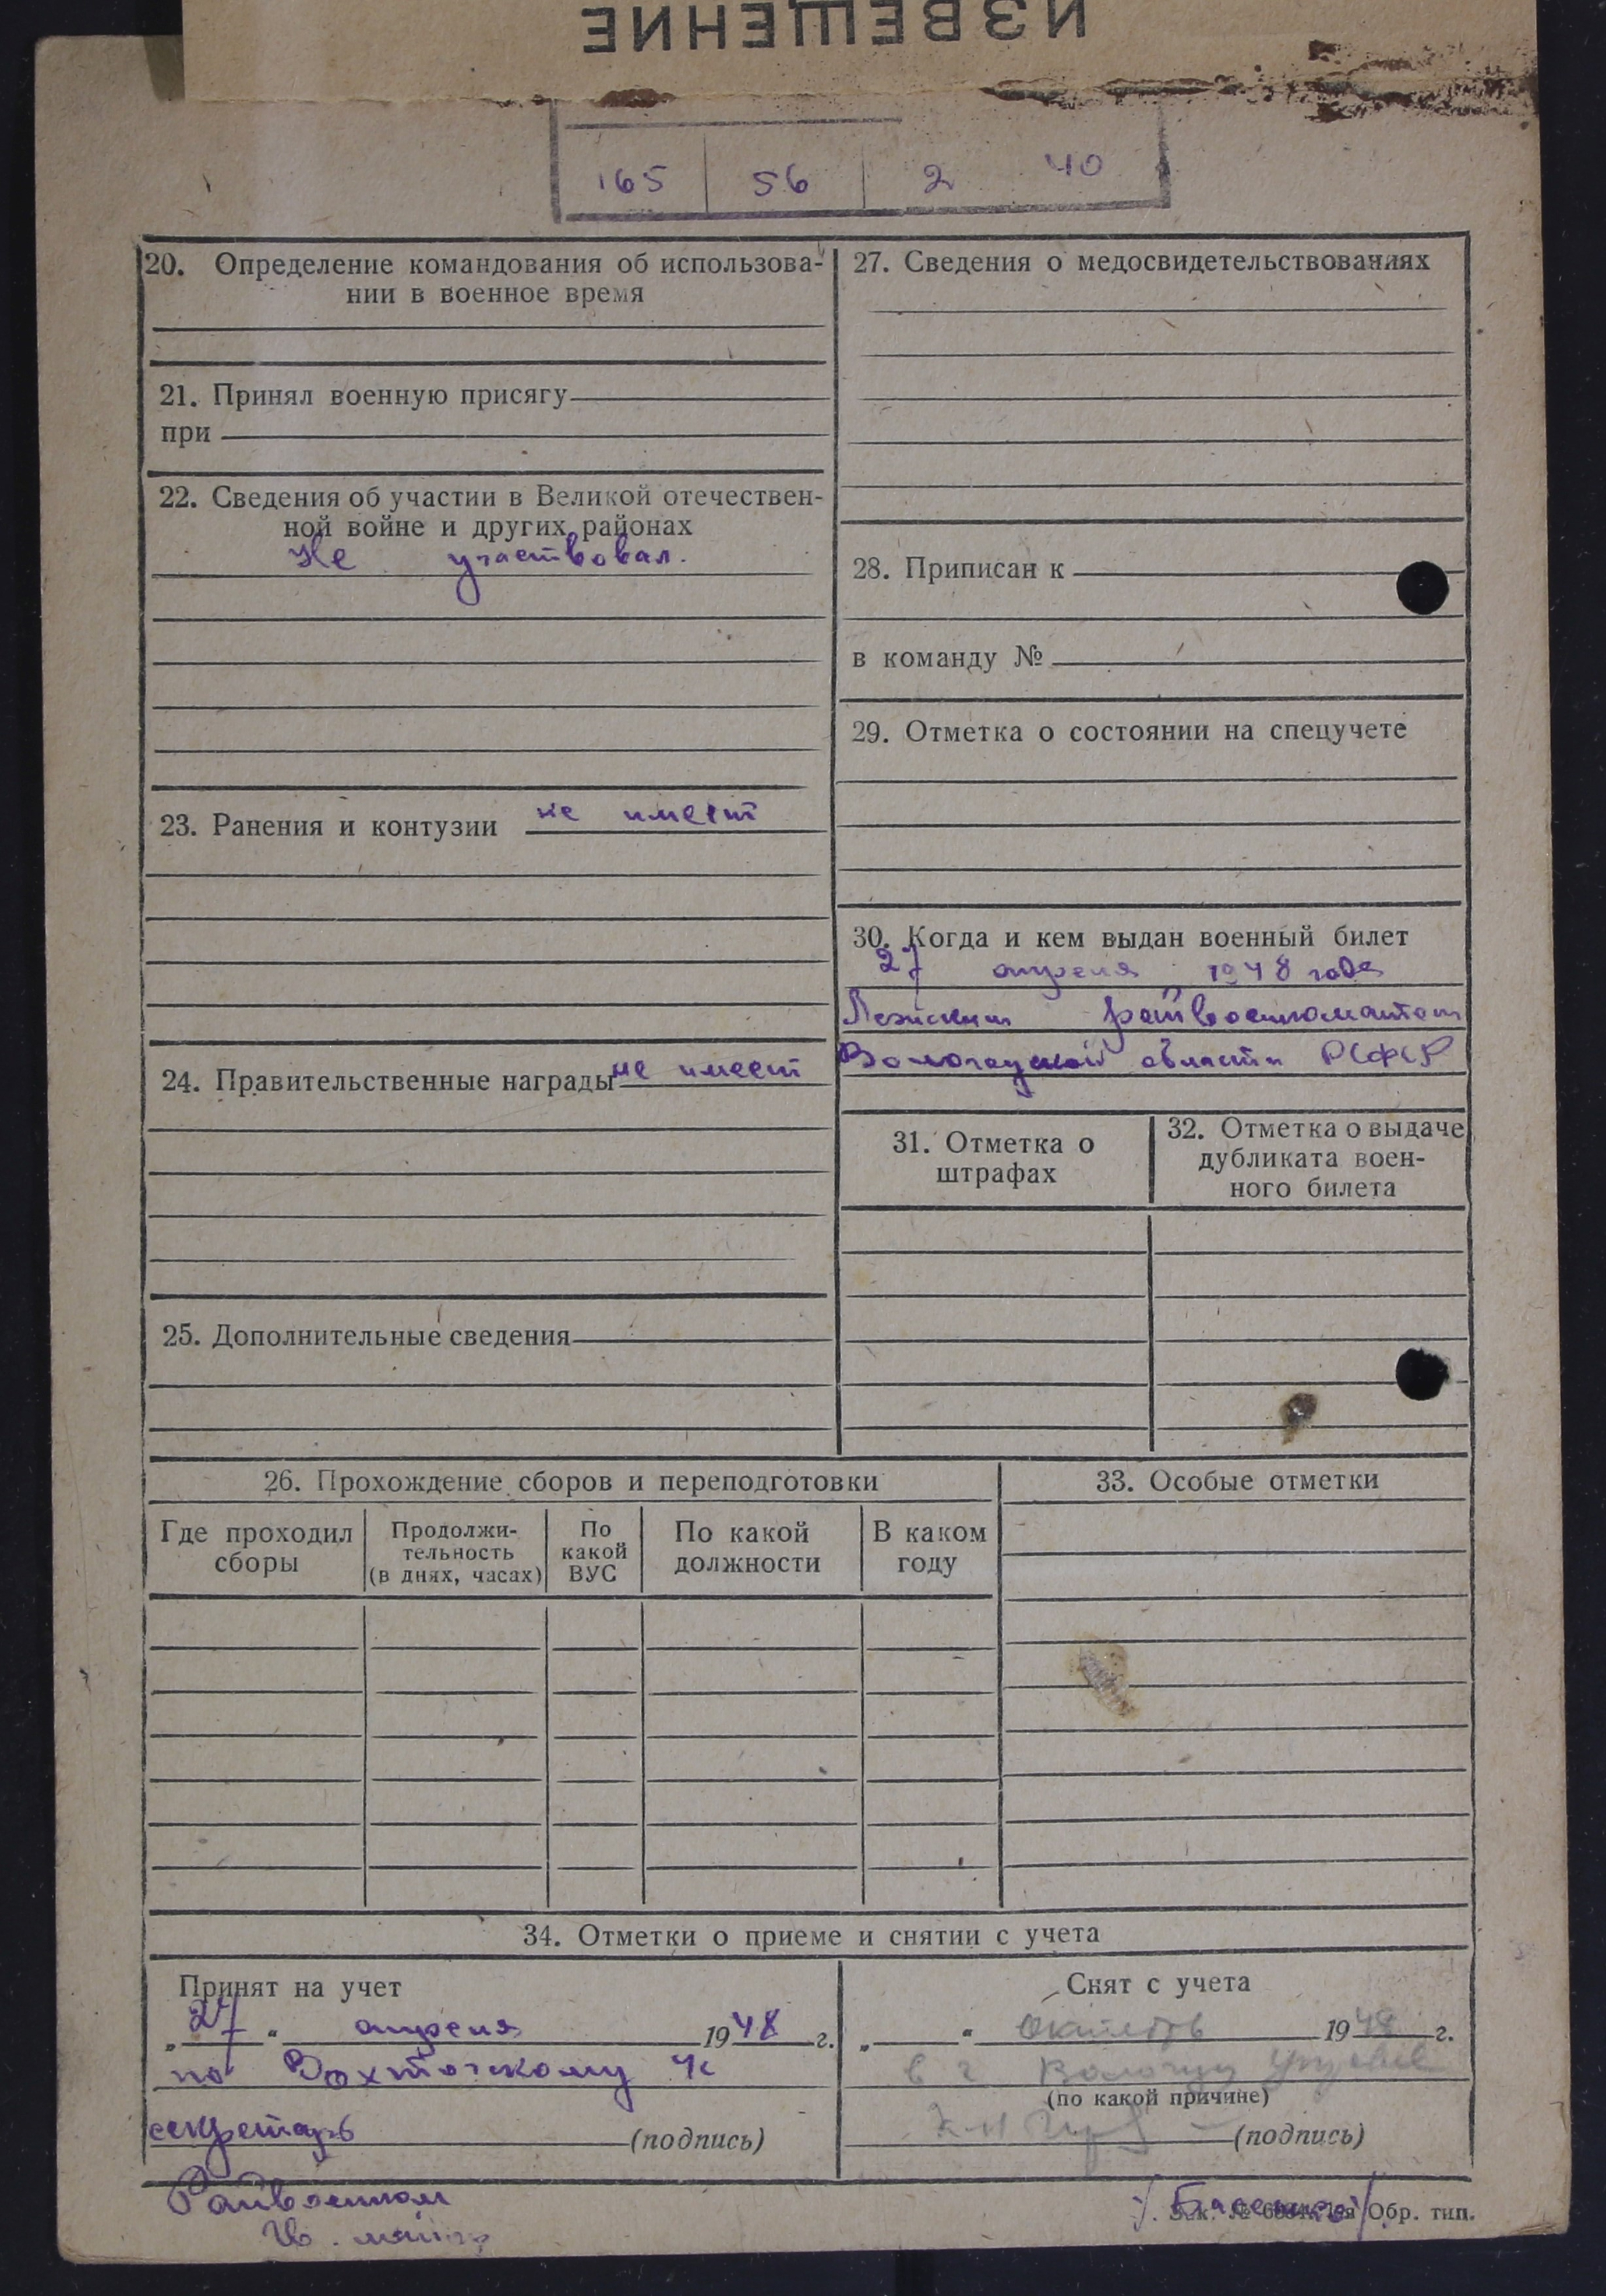 ИЗВЕЩЕНИЕ
165 56 2 40
20. Определение командования об использова-
нии в военное время
21. Принял военную присягу
при
22. Сведения об участии в Великой отечествен-
ной войне и других районах
Не участвовал.
23. Ранения и контузии не имеет
24. Правительственные награды не имеет
25. Дополнительные сведения
27. Сведения о медосвидетельствованиях
28. Приписан к
в команду №
29. Отметка о состоянии на спецучете
30. Когда и кем выдан военный билет
27 апреля 1948 года
райвоенкоматом
Вологодской области РСФСР
31. Отметка о
штрафах
32. Отметка о выдаче
дубликата воен-
ного билета
26. Прохождение сборов и переподготовки
Где проходил
сборы
Продолжи-
тельность
(в днях, часах)
По
какой
ВУС
По какой
должности
В каком
году
33. Особые отметки
34. Отметки о приеме и снятии с учета
Принят на учет
„27“ апреля 1948 г.
по Вохтожскому
секретарь (подпись)
Райвоенком
Снят с учета
„ “ октябрь 1948 г.
в г Вологду
(по какой причине)
(подпись)
Обр. тип.